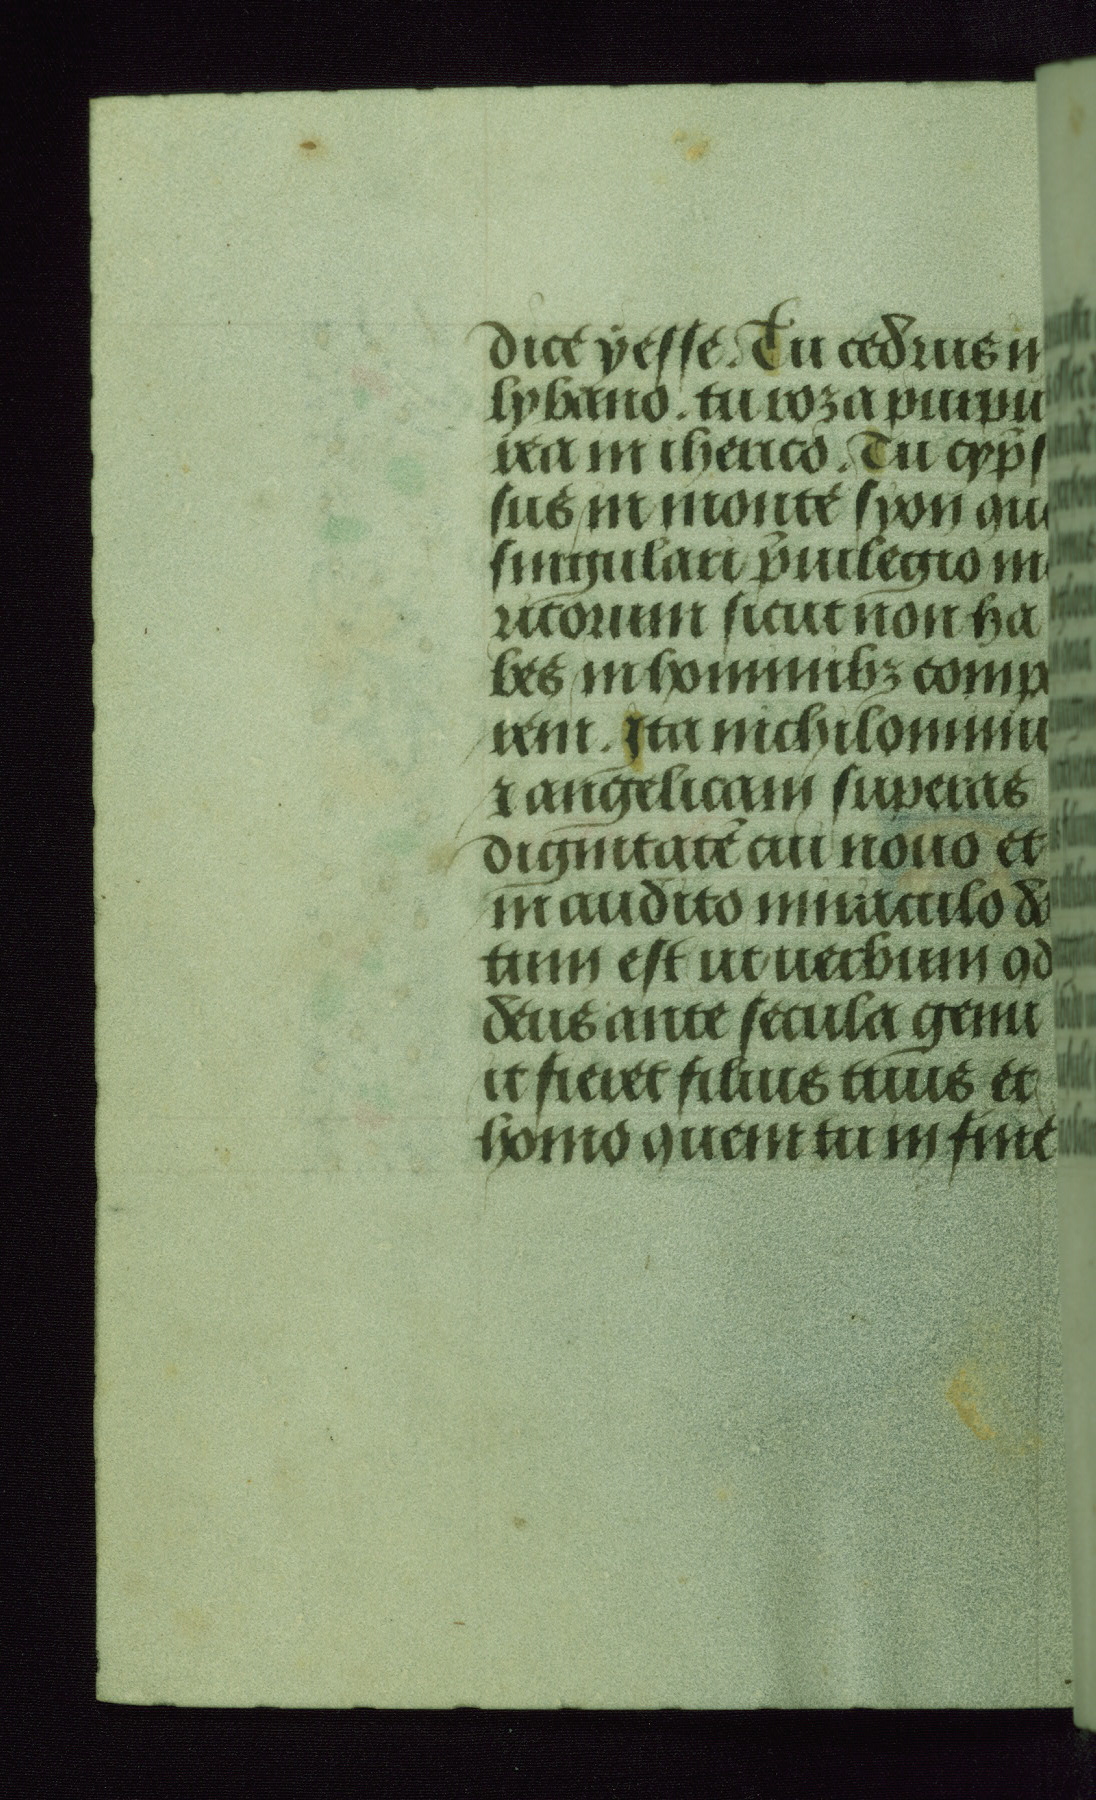 dice yesse. Tu cedrus in
lybano. tu roza purpu
rea in iherico. Tu cyp̄s
sus in monte syon que
singulari p̄uilegio me
ritorum sicut non ha
bes in hominibꝫ comp
rem. Ita nichilominu
⁊ angelicam superas
dignitatē cui nouo et
in audito miraculo da
tum est ut uerbum qd
deus ante secula genu
it fieret filius tuus et
homo quem tu in fine